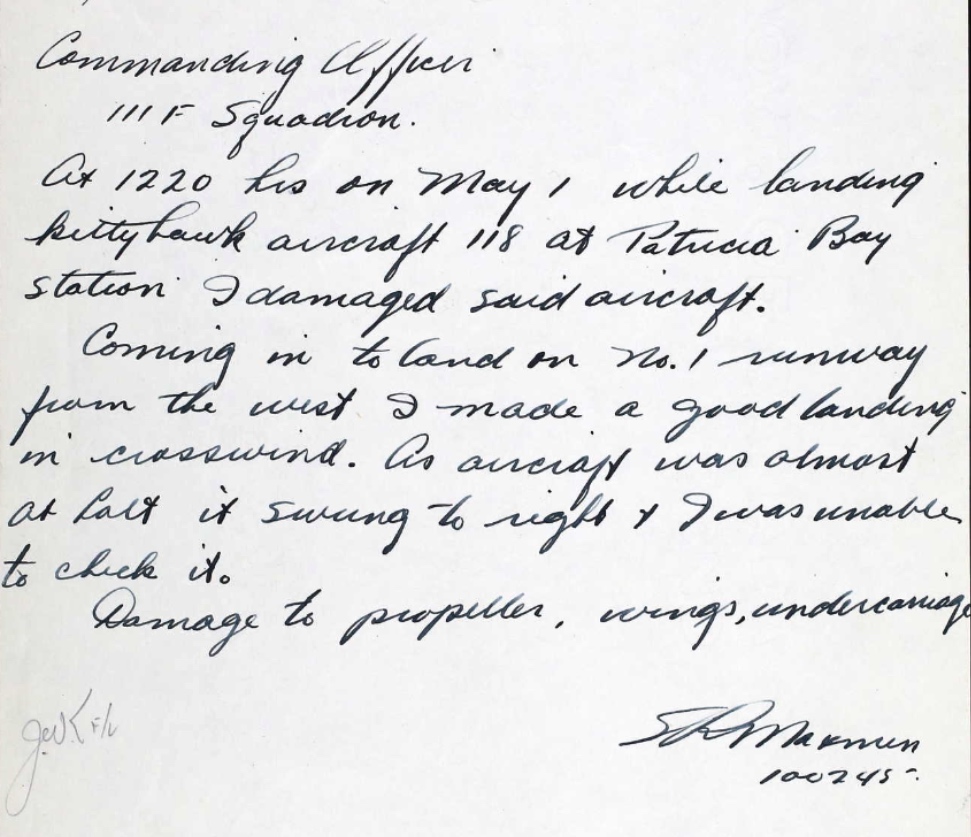 Commanding Officer
111 F Squadron.
At 1220 hrs on May 1 while landing
kittyhawk aircraft 118 at Patricia Bay
station I damaged said aircraft.
Coming in to land on No. 1 runway
from the west I made a good landing
in crosswind. As aircraft was almost
at halt it swung to right & I was unable
to check it.
Damage to propeller, wings, undercarriage
F/L
Maxmen
100245.